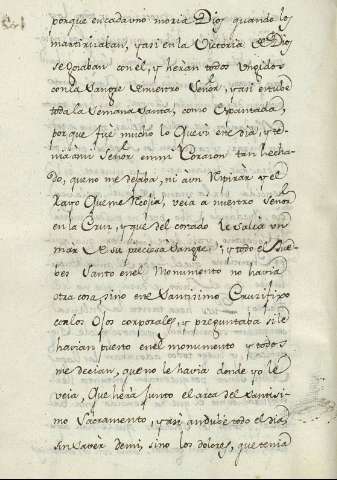 porque en cada uno moria Dios quando los
martirizaban, y asi en la Victoria de Dios
se gozaban con el, y heran todos Ungidos
con la Sangre de nuestro Señor, y asi estube
toda la Semana Santa, como Espantada,
porque fue mucho lo que vi ese dia, y te-
nia à mi Señor en mi Corazon tan hecha-
do, que no me dejaba, ni aun Respirar y el
Rayo que me Cojia, veia à nuestro Señor
en la Cruz, y que del costado le salia un
mar de su preciosa Sangre, y todo el Jue-
bes Santo en el Monumento no havia
otra cosa sino ese Santisimo Crusifixo
con los Ojos corporales, y preguntaba si le
havian puesto en el monumento y todos
me decian, que no le havia donde yo le
veia, Que hera junto el arca del Santisi-
mo Sacramento, y asi andube todo el dia,
sin saver de mi, sino los dolores, que tenia